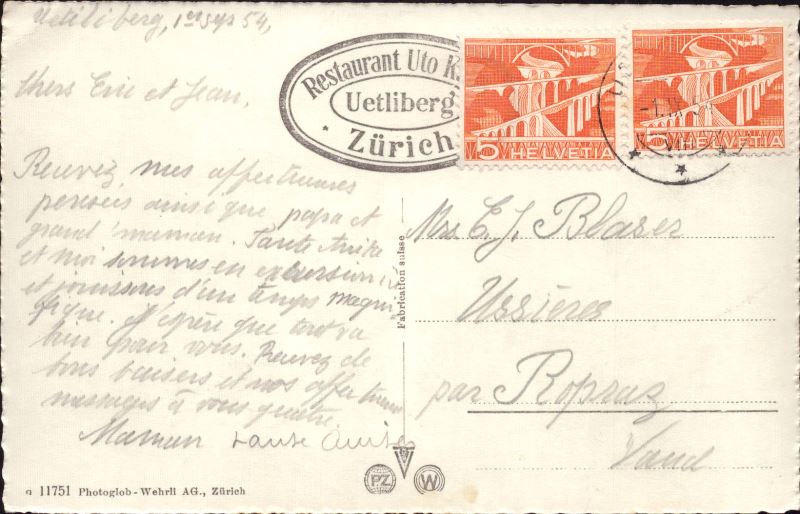 Uetiliberg, 1er sep 54,
chers Eric et Jean,
Recevez, mes affectueuses
pensées ainsi que papa et
grand'maman. Tante Anita
et moi sommes en excursion
et jouissons d'un temps magni-
fique. J'espère que tout va
bien pour vous. Recevez de
bons baisers et nos affectueux
messages à vous quatre.
Maman Tante Anita
Restaurant Uto K
Uetliberg
Zürich
5 HELVETIA
5 HELVETIA
Fabrication suisse
E. J. Blaser
Ussières
par Ropraz
Vaud
11751 Photoglob-Wehrli AG., Zürich
PZ
W